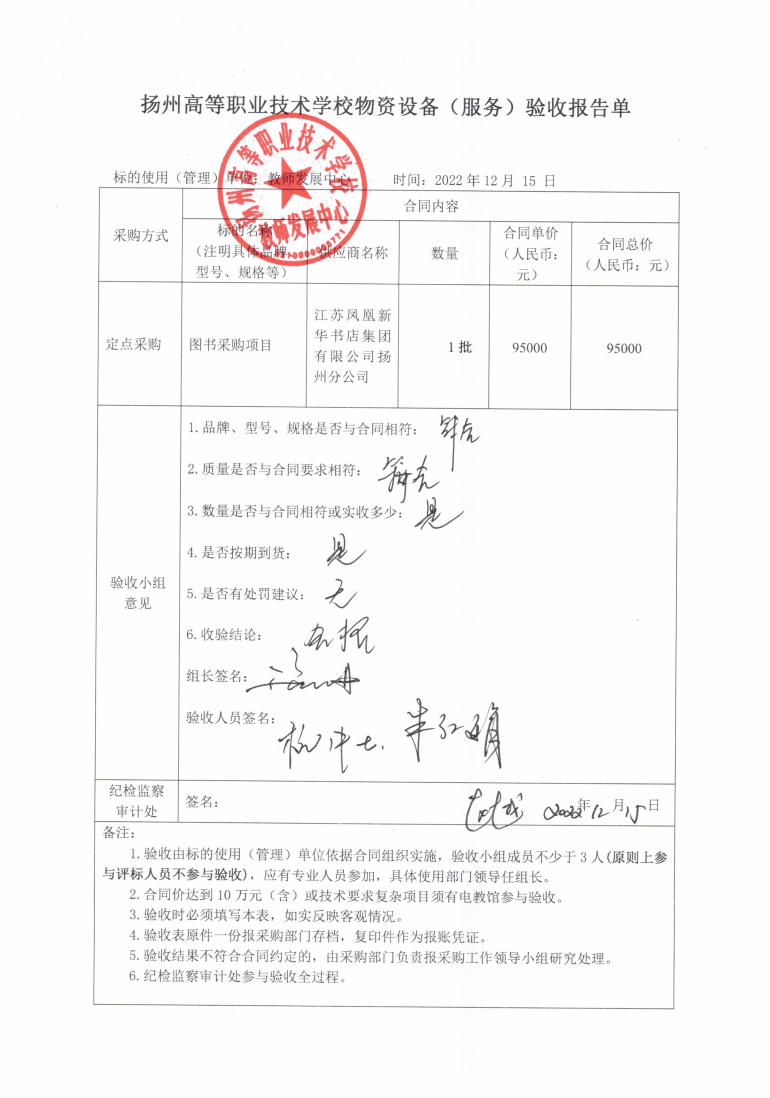 扬州高等职业技术学校物资设备（服务）验收报告单
扬州高等职业技术学校
教师发展中心
标的使用（管理）单位：教师发展中心
时间：2022年12月 15 日
采购方式
合同内容
标的名称
（注明具体品牌、
型号、规格等）
供应商名称
数量
合同单价
（人民币：
元）
合同总价
（人民币：元）
定点采购
图书采购项目
江苏凤凰新
华书店集团
有限公司扬
州分公司
1批
95000
95000
验收小组
意见
1.品牌、型号、规格是否与合同相符： 符合
2.质量是否与合同要求相符： 符合
3.数量是否与合同相符或实收多少： 是
4.是否按期到货： 是
5.是否有处罚建议： 无
6.收验结论： 合格
组长签名：
验收人员签名：
纪检监察
审计处
签名：
2022年12月15日
备注：
1.验收由标的使用（管理）单位依据合同组织实施，验收小组成员不少于3人(原则上参
与评标人员不参与验收)，应有专业人员参加，具体使用部门领导任组长。
2.合同价达到10万元（含）或技术要求复杂项目须有电教馆参与验收。
3.验收时必须填写本表，如实反映客观情况。
4.验收表原件一份报采购部门存档，复印件作为报账凭证。
5.验收结果不符合合同约定的，由采购部门负责报采购工作领导小组研究处理。
6.纪检监察审计处参与验收全过程。